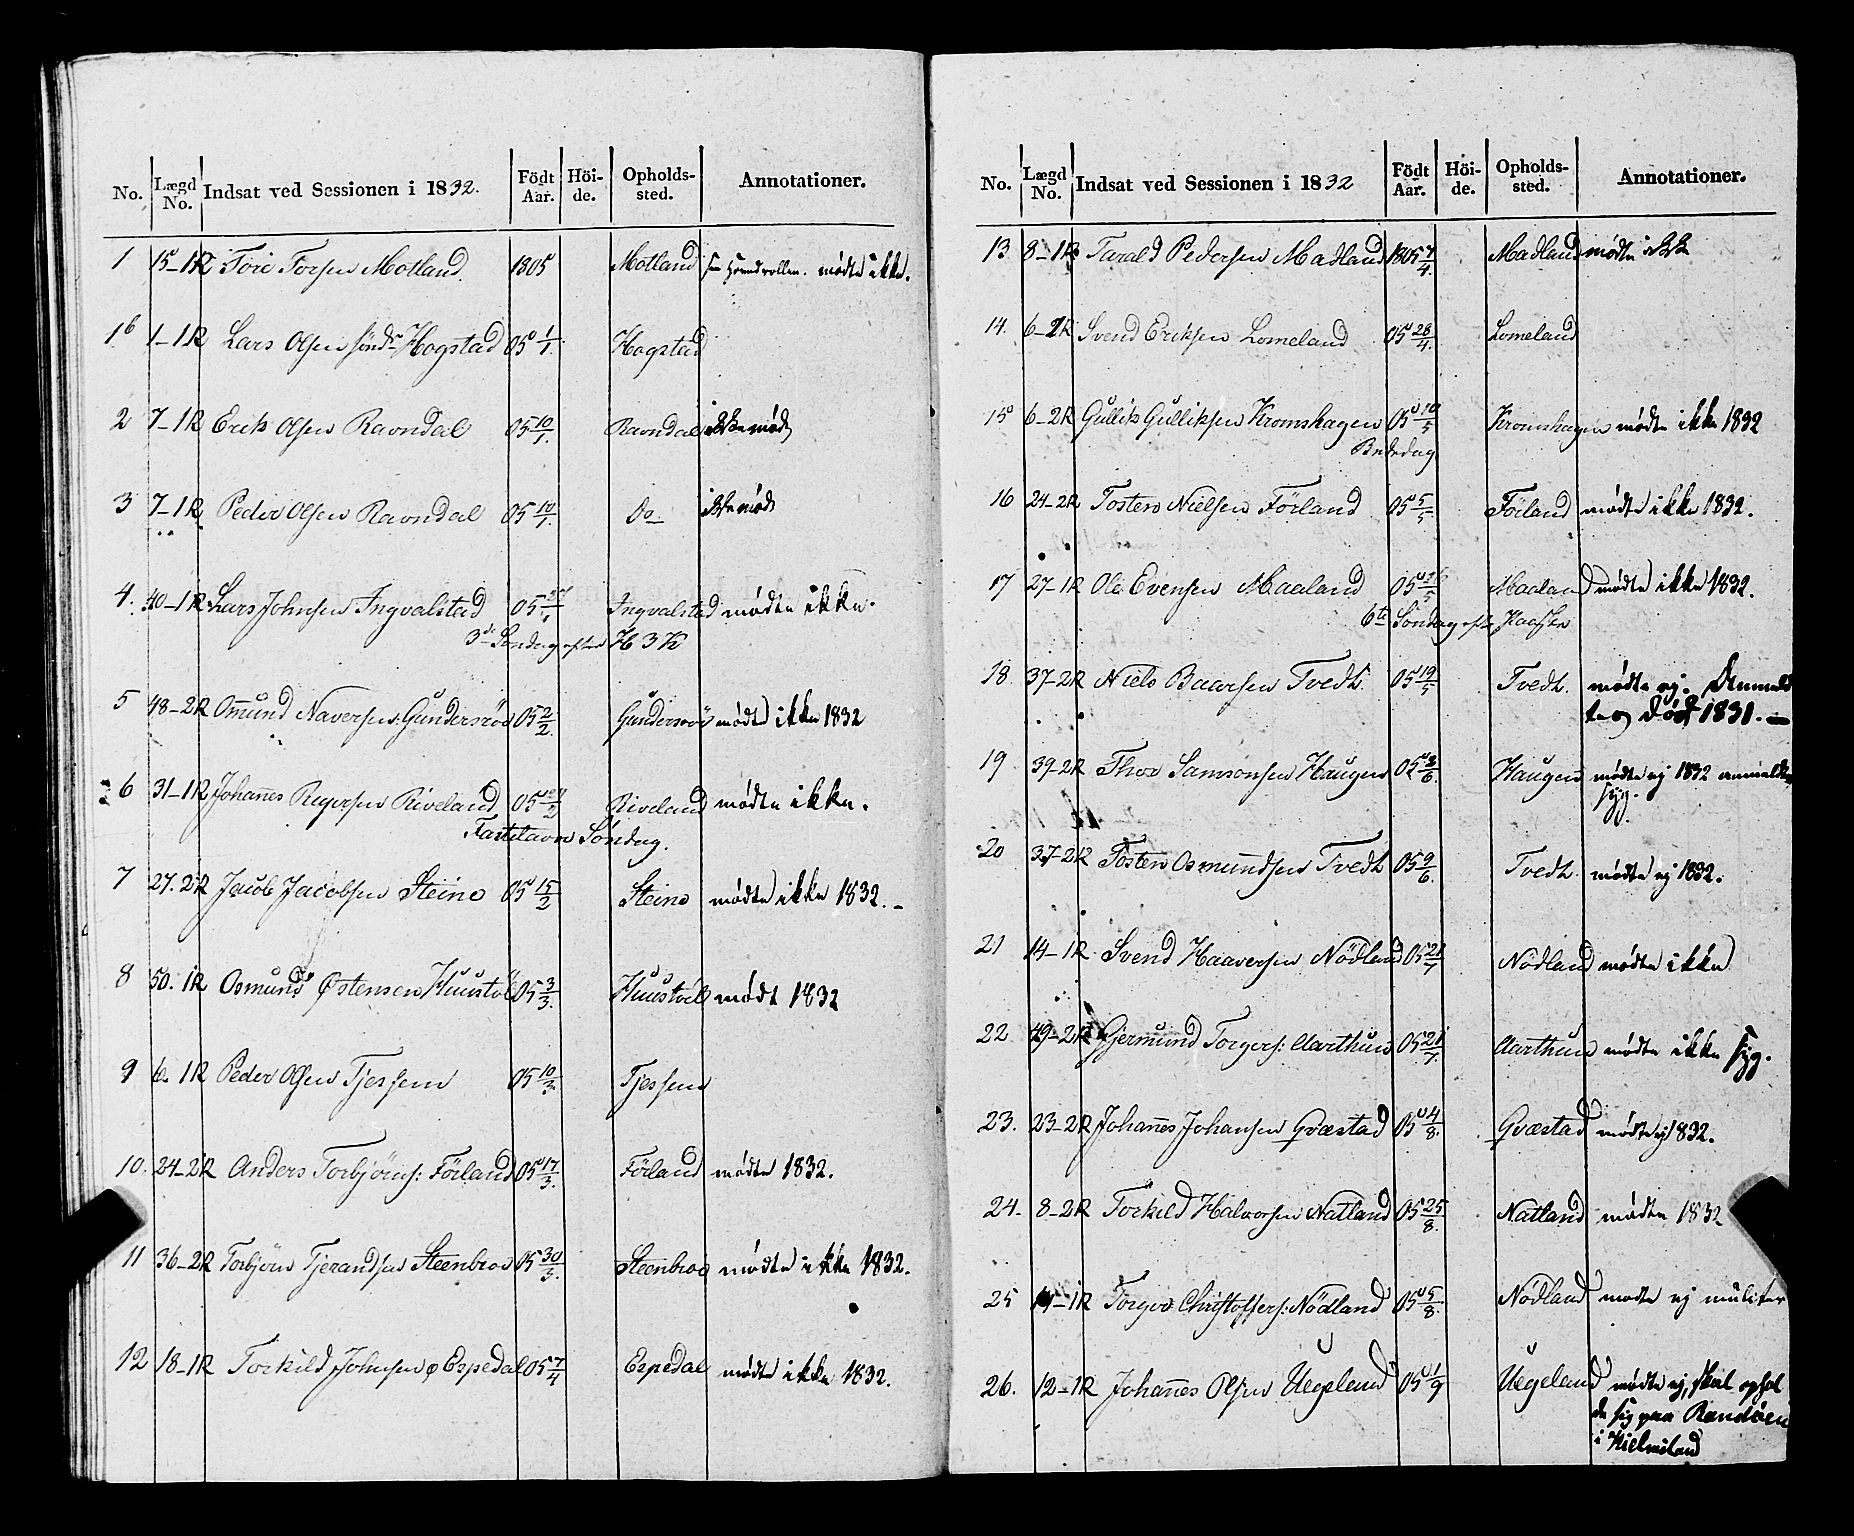 No. Lægd No. Indsat ved Sessionen i 1832. Födt Aar. Höi-de. Opholds-sted. Annotationer.
1 15-1R Tore Torsen Motland. 1805 Motland mödte ikke.
1b 1-1R Lars Olsen sönd Hogstad 05 1/1. Hogstad
2 7-1R Erik Olsen Ravndal 05 10/1. Ravndal ikke mödt
3 7-1R Peder Olsen Ravndal 05 10/1. Do ikke mödt
4. 40-1R Lars Johnsen Ingvalstad 05 Ingvalstad mödte ikke.
3de Söndag efter H 3 K
5 48-2R Omund Naversen Gundersröe 05 2/2. Gundersröe mödte ikke 1832
6 31-1R Johanes Riveland 05 Riveland mödte ikke.
Fastelavns Söndag.
7 27. 2R Jacob Jacobsen Steine 05 15/2 Steine mödte ikke 1832.
8 50. 1R Osmund Östensen Huustvél 05 3/3. Huustvél mödt 1832
9 6. 1R Peder Olsen Tjessem 05 10/3. Tjessem
10. 24-2R Anders Torbjörns: Förland 05 17/3. Förland mödte 1832.
11 36-2R Torbjörn Tjerandsen Steenbroe 05 30/3. Steenbroe mödte ikke 1832.
12 18-1R Torkild Johnsen Espedal 05 7/4 Espedal mödte ikke 1832.
No. Lægd No. Indsat ved Sessionen i 1832 Födt Aar. Höi-de. Opholds-sted. Annotationer.
13 8-1R Tarald Pedersen Madland 1805 7/4. Madland mödte ikke
14. 6-2R Svend Eriksen Lomeland 05 28/4. Lomeland
15 6-2R Gullik Gulliksen Kromshagen 05 10/5 Kromshagen mödte ikke 1832
Bededag
16 24-2R Tosten Nielsen Förland 05 5/5. Förland mödte ikke 1832.
17 27-1R Ole Evensen Maaland 05 Maaland mödte ikke 1832.
6te Söndag eft Paaske
18. 37-2R Niels Baarsen Tvedt. 05 19/5 Tvedt. mödte ej. Anmeld
tes död 1831.
19 39-2R Thor Samsonsen Haugen 05 3/6. Haugen mödte ej 1832 anmeldtes
syg.
20 37-2R Tosten Osmundsen Tvedt 05 9/6. Tvedt. mödte ej 1832.
21 14-1R Svend Haaversen Nödland 05 21/7 Nödland mödte ikke
22 49-2R Gjermund Torgers: Aarthun 05 21/7. Aarthun mödte ikke syg.
23. 23-2R Johannes Johansen Gvæstad 05 4/8. Gvæstad mödte ej 1832.
24. 8-2R Torkild Halvorsen Natland 05 25/8. Natland mödte 1832
25 14-1R Torger Christoffers: Nödland 05 5/8. Nödland mödte ej
26. 12-1R Johannes Olsen Uegeland 05 1/9 Uegeland mödte ej, skal ophol
de sig paa Randöen
i Hielmeland